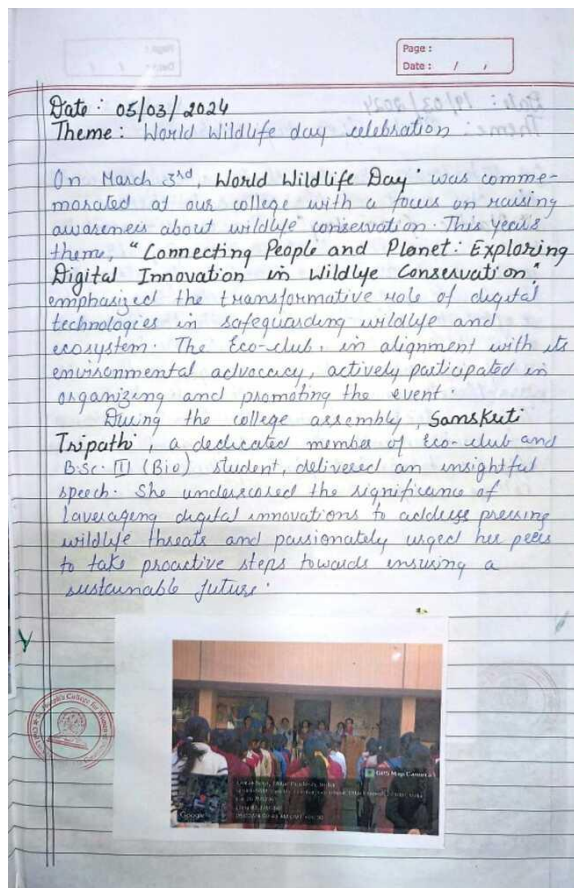 Page :
Date : / /
Date : 05/03/2024
Theme : World Wildlife day celebration
On March 3rd, World Wildlife Day' was comme-
morated at our college with a focus on raising
awareness about wildlife conservation. This years
theme, "Connecting People and Planet: Exploring
Digital Innovation in Wildlife Conservation."
emphasized the transformative role of digital
technologies in safeguarding wildlife and
ecosystem. The Eco-club, in alignment with its
environmental advocacy, actively participated in
organizing and promoting the event.
During the college assembly, Sanskriti
Tripathi, a dedicated member of Eco-club and
B.Sc. III (Bio) student, delivered an insightful
speech. She underscored the significance of
laveraging digital innovations to address pressing
wildlife threats and passionately urged her peers
to take proactive steps towards ensuring a
sustainable future.
GPS Map Camera
Google